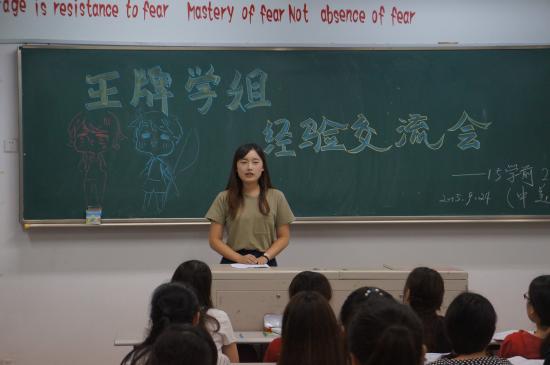 age is resistance to fear Mastery of fear Not absence of fear
王牌学组
经验交流会
——15学前2
2015.9.24